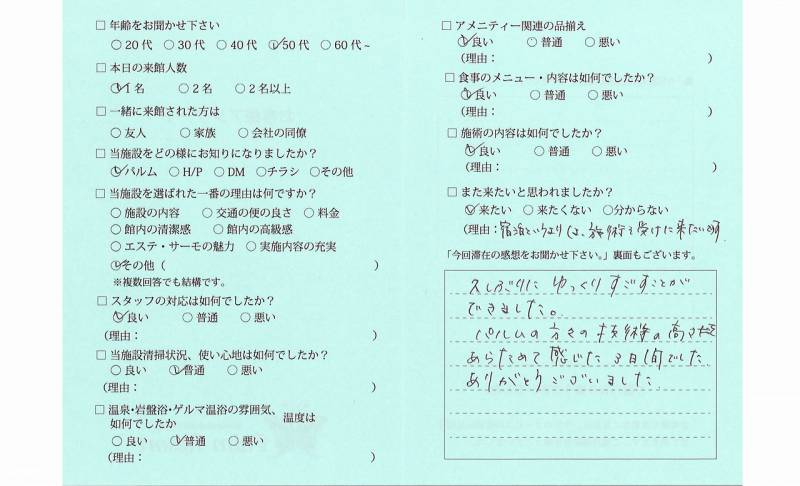 □ 年齢をお聞かせ下さい
○20代 ○30代 ○40代 ○50代 ○60代~
□ 本日の来館人数
○1名 ○2名 ○2名以上
□ 一緒に来館された方は
○友人 ○家族 ○会社の同僚
□ 当施設をどの様にお知りになりましたか？
○パルム ○H/P ○DM ○チラシ ○その他
□ 当施設を選ばれた一番の理由は何ですか？
○施設の内容 ○交通の便の良さ ○料金
○館内の清潔感 ○館内の高級感
○エステ・サーモの魅力 ○実施内容の充実
○その他（ ）
※複数回答でも結構です。
□ スタッフの対応は如何でしたか？
○良い ○普通 ○悪い
（理由： ）
□ 当施設清掃状況、使い心地は如何でしたか？
○良い ○普通 ○悪い
（理由： ）
□ 温泉・岩盤浴・ゲルマ温浴の雰囲気、温度は
如何でしたか
○良い ○普通 ○悪い
（理由： ）
□ アメニティー関連の品揃え
○良い ○普通 ○悪い
（理由： ）
□ 食事のメニュー・内容は如何でしたか？
○良い ○普通 ○悪い
（理由： ）
□ 施術の内容は如何でしたか？
○良い ○普通 ○悪い
（理由： ）
□ また来たいと思われましたか？
○来たい ○来たくない ○分からない
（理由：宿泊というよりは、施術を受けに来たいです
「今回滞在の感想をお聞かせ下さい。」裏面もございます。
久しぶりに ゆっくり すごすことが
できました。
パルムの方々の 技術の高さを
あらためて 感じた 3日間でした
ありがとうございました